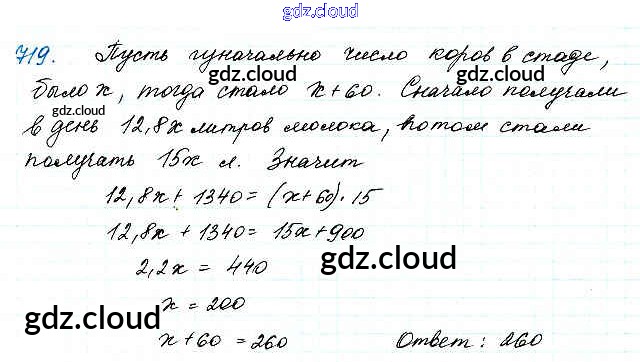 gdz.cloud
719. Пусть изначально число коров в стаде,
gdz.cloud gdz.cloud
было x, тогда стало x+60. Сначало получали
gdz.cloud
в день 12,8x литров молока, потом стали
получать 15x л. Значит
12,8x + 1340 = (x+60)·15
12,8x + 1340 = 15x+900
2,2x = 440
gdz.cloud
x = 200
gdz.cloud
x+60 = 260 Ответ: 260